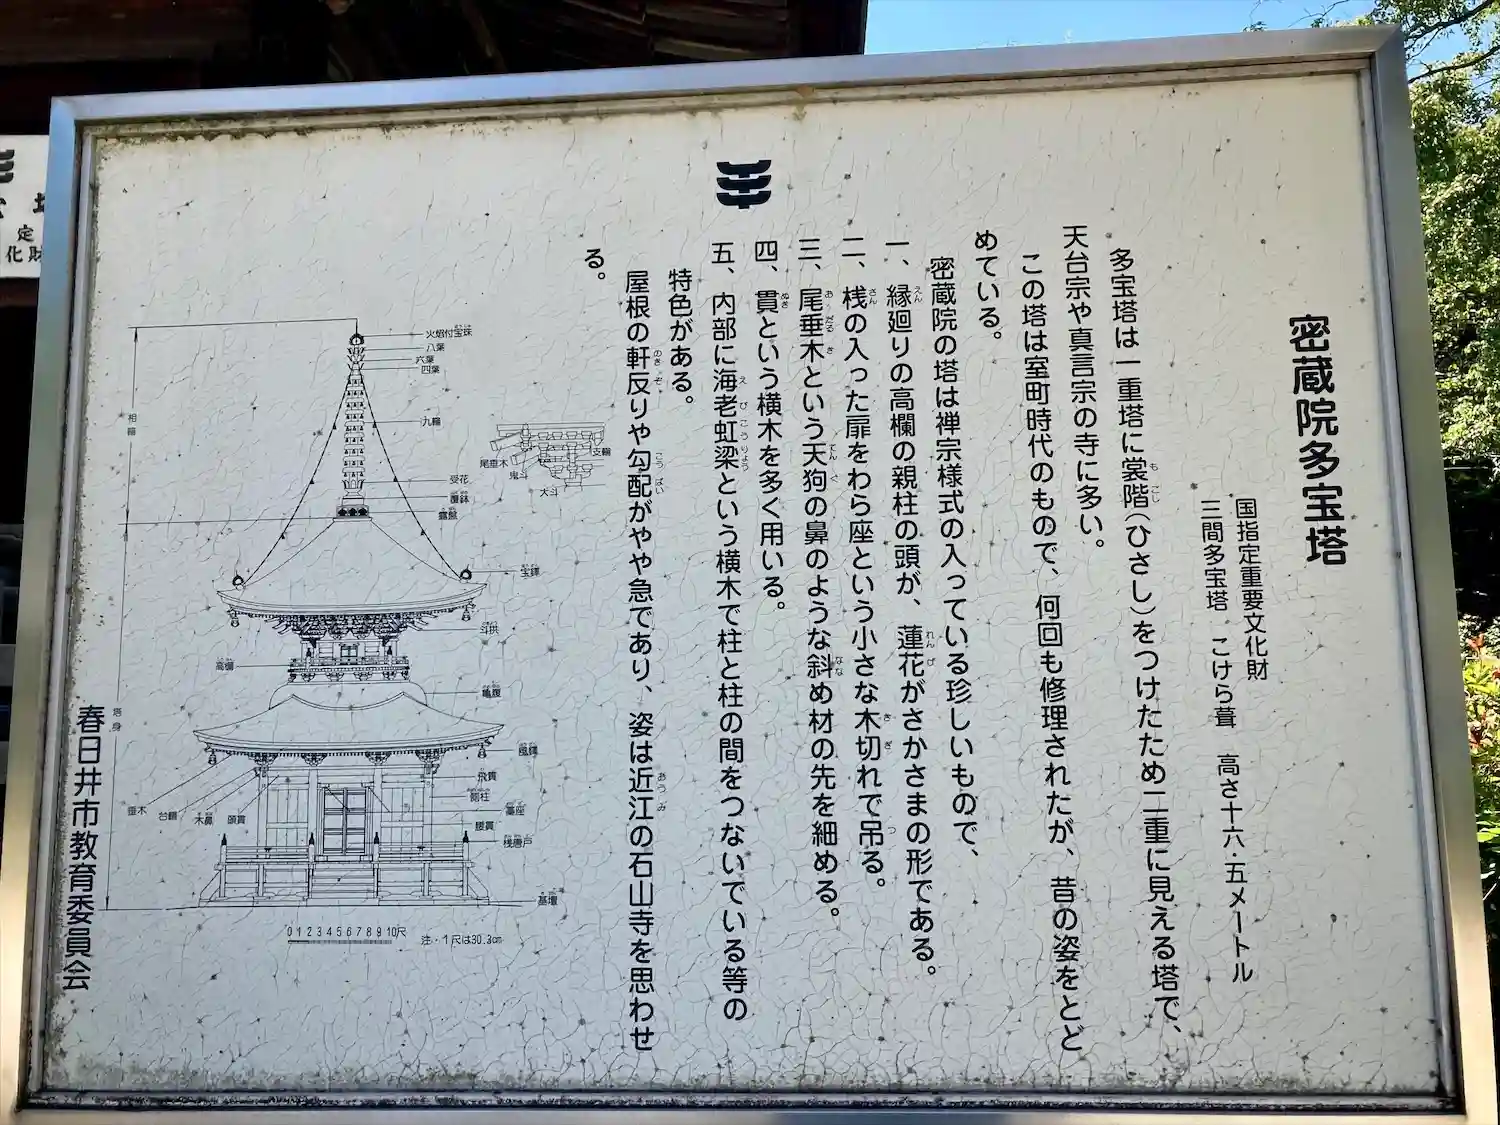 密蔵院多宝塔
国指定重要文化財
三間多宝塔　こけら葺　高さ十六・五メートル
多宝塔は一重塔に裳階(ひさし)をつけたため二重に見える塔で、
天台宗や真言宗の寺に多い。
この塔は室町時代のもので、何回も修理されたが、昔の姿をとど
めている。
密蔵院の塔は禅宗様式の入っている珍しいもので、
一、縁廻りの高欄の親柱の頭が、蓮花がさかさまの形である。
二、桟の入った扉をわら座という小さな木切れで吊る。
三、尾垂木という天狗の鼻のような斜め材の先を細める。
四、貫という横木を多く用いる。
五、内部に海老虹梁という横木で柱と柱の間をつないでいる等の
特色がある。
屋根の軒反りや勾配がやや急であり、姿は近江の石山寺を思わせ
る。
火焔付宝珠
八葉
六葉
四葉
九輪
受花
覆鉢
露盤
宝鐸
斗栱
高欄
亀腹
風鐸
飛貫
側柱
藁座
腰貫
桟唐戸
基壇
垂木
台輪
木鼻
頭貫
相輪
塔身
尾垂木
鬼斗
大斗
支輪
0 1 2 3 4 5 6 7 8 9 10尺
注・1尺は30.3cm
春日井市教育委員会
定
化財